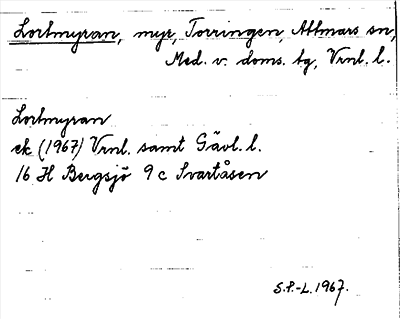 Lortmyran, myr, Torringen, Attmars sn,
Med. v. doms. tg, Vrnl. l.
Lortmyran
ek (1967) Vrnl. samt Gävl. l.
16 H Bergsjö 9 c Svartåsen
S.P.-L. 1967.